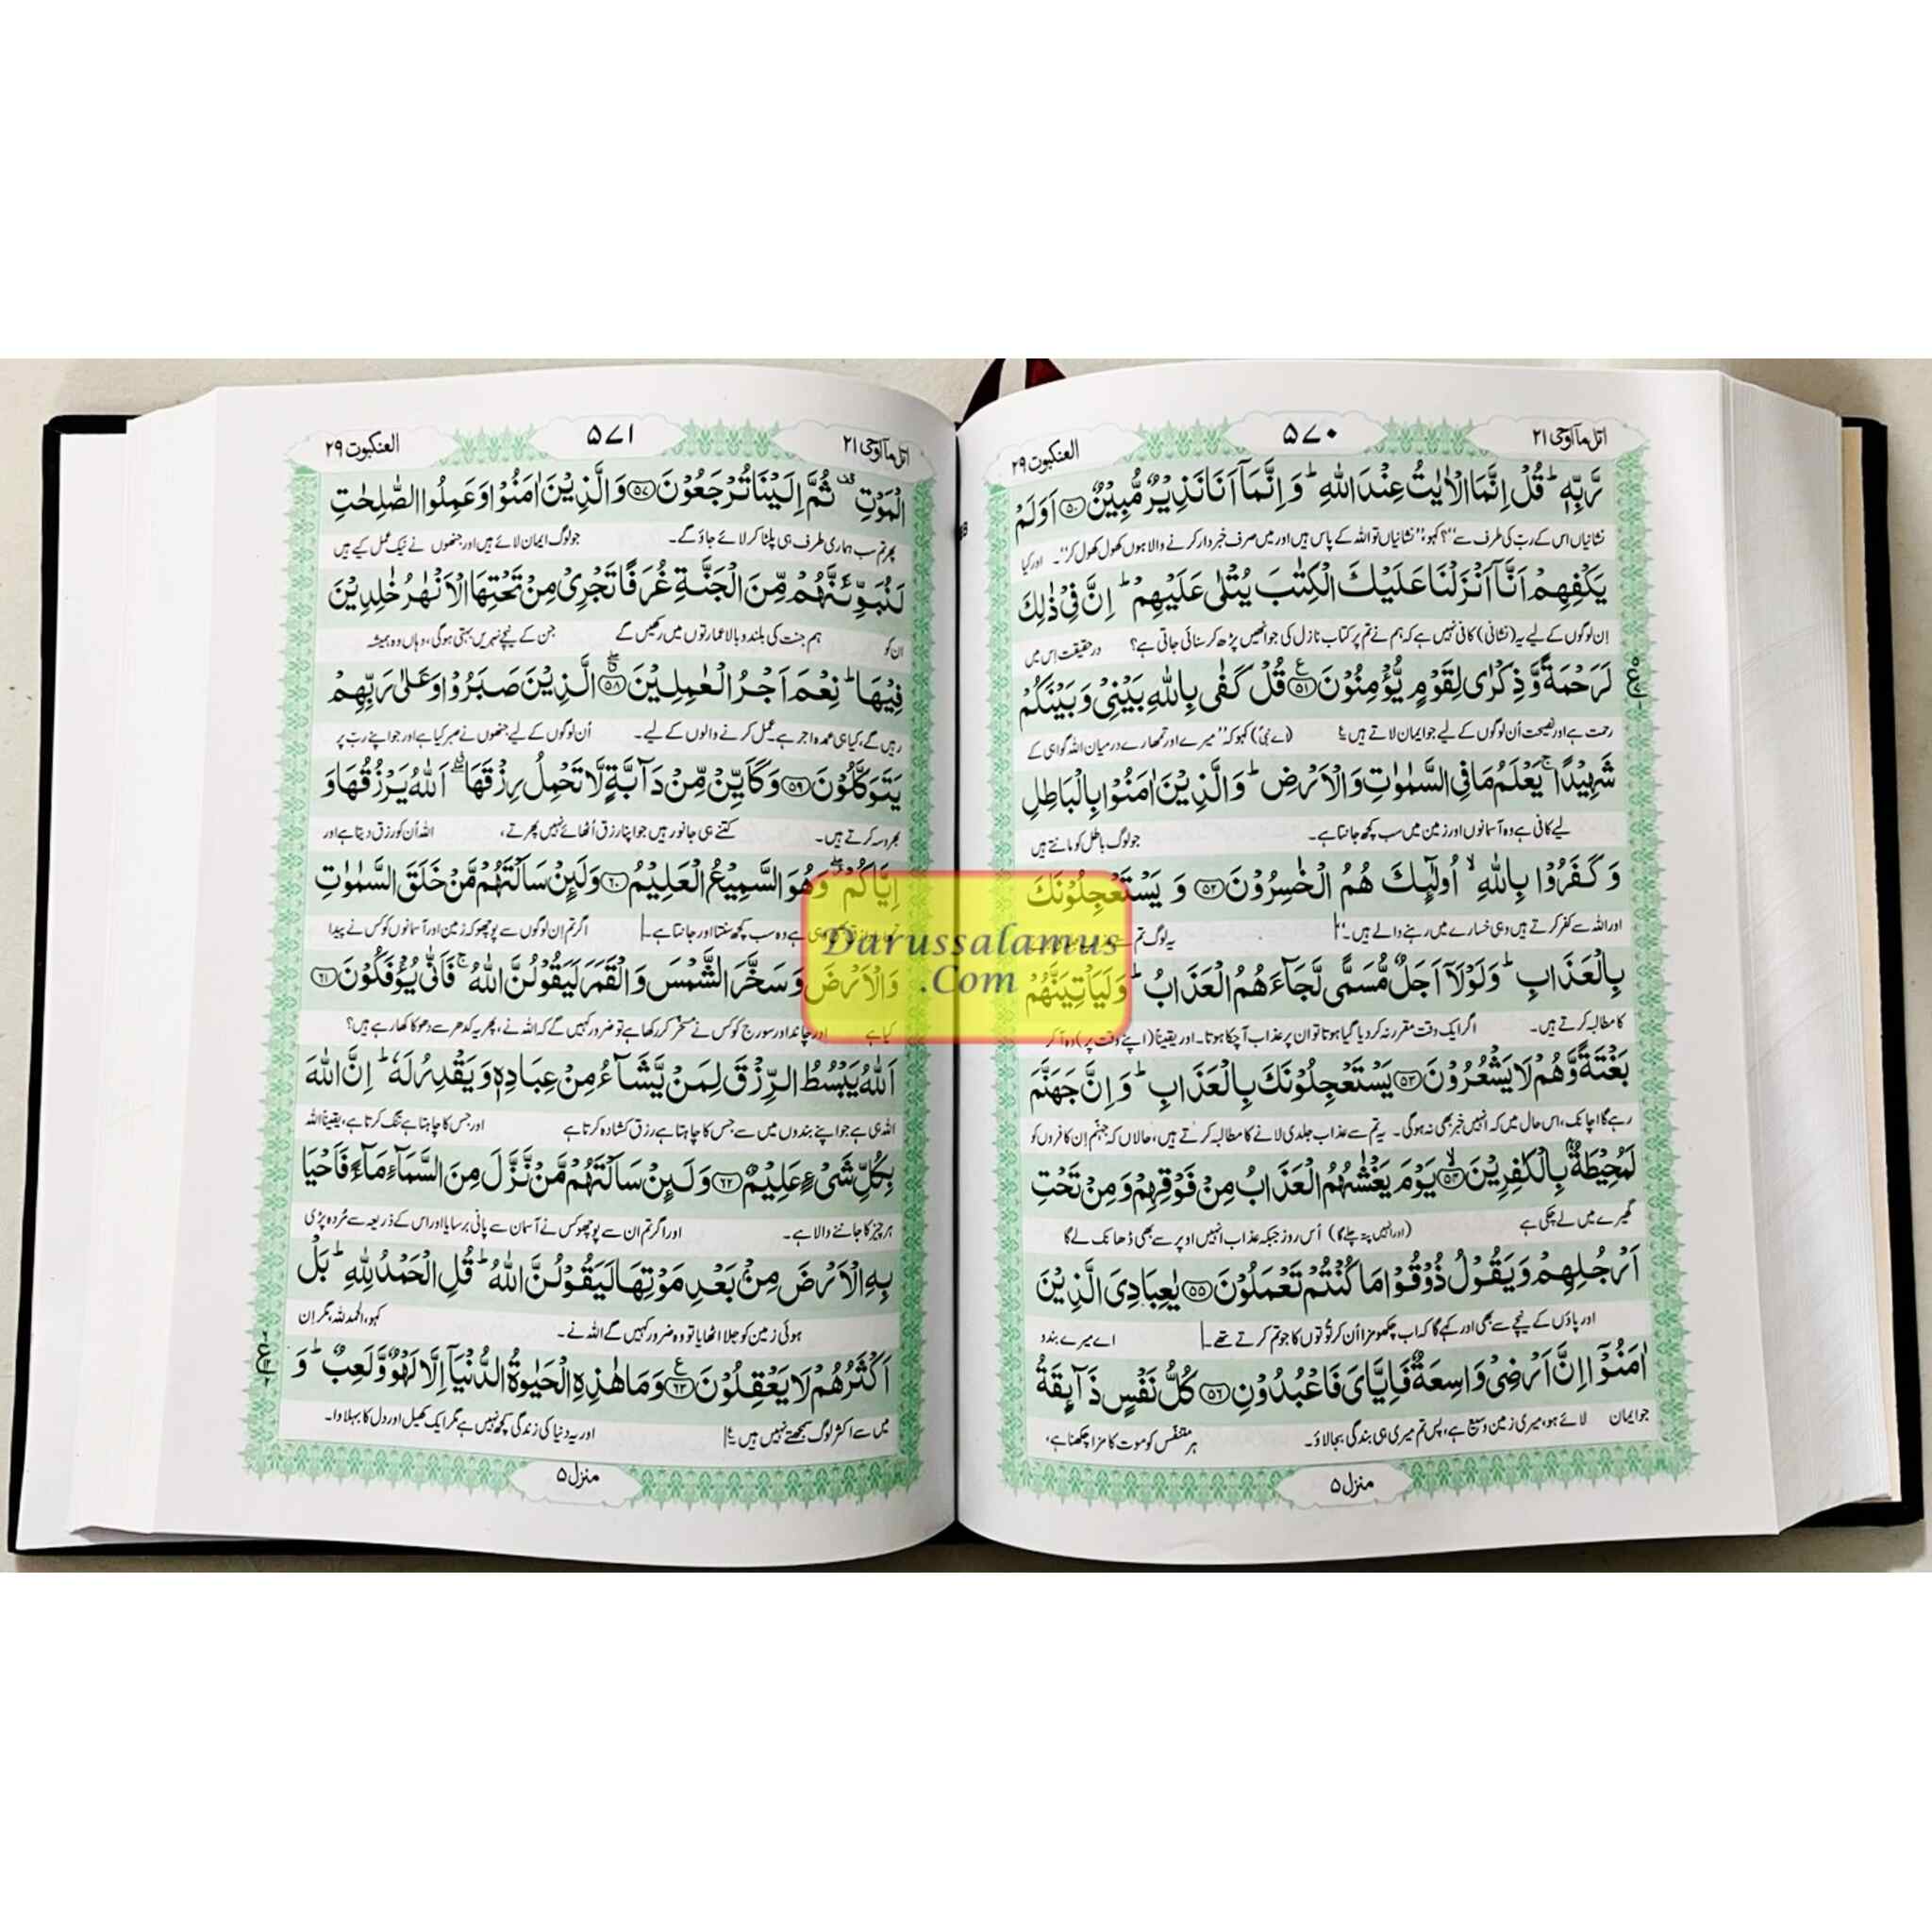 اتل ما اوحی ۲۱
۵۷۰
العنکبوت ۲۹
رَّبِّهٖ ؕ قُلْ اِنَّمَا الْاٰیٰتُ عِنْدَ اللّٰهِ ؕ وَ اِنَّمَاۤ اَنَا نَذِیْرٌ مُّبِیْنٌ ﴿۵۰﴾ اَوَ لَمْ
نشانیاں اس کے رب کی طرف سے“؟ کہو،”نشانیاں تو اللہ کے پاس ہیں اور میں صرف خبردار کرنے والا ہوں کھول کھول کر“۔ اور کیا
یَكْفِهِمْ اَنَّاۤ اَنْزَلْنَا عَلَیْكَ الْكِتٰبَ یُتْلٰی عَلَیْهِمْ ؕ اِنَّ فِیْ ذٰلِكَ
اِن لوگوں کے لیے یہ (نشانی) کافی نہیں ہے کہ ہم نے تم پر کتاب نازل کی جو انھیں پڑھ کر سنائی جاتی ہے؟ درحقیقت اِس میں
لَرَحْمَةً وَّ ذِكْرٰی لِقَوْمٍ یُّؤْمِنُوْنَ ﴿۵۱﴾ قُلْ كَفٰی بِاللّٰهِ بَیْنِیْ وَ بَیْنَكُمْ
رحمت ہے اور نصیحت اُن لوگوں کے لیے جو ایمان لاتے ہیں۔ (اے نبیؐ) کہو کہ ”میرے اور تمھارے درمیان اللہ گواہی کے
شَهِیْدًا ۚ یَعْلَمُ مَا فِی السَّمٰوٰتِ وَ الْاَرْضِ ؕ وَ الَّذِیْنَ اٰمَنُوْا بِالْبَاطِلِ
لیے کافی ہے وہ آسمانوں اور زمین میں سب کچھ جانتا ہے۔ جو لوگ باطل کو مانتے ہیں
وَ كَفَرُوْا بِاللّٰهِ ۙ اُولٰٓئِكَ هُمُ الْخٰسِرُوْنَ ﴿۵۲﴾ وَ یَسْتَعْجِلُوْنَكَ
اور اللہ سے کفر کرتے ہیں وہی خسارے میں رہنے والے ہیں۔“ یہ لوگ تم
بِالْعَذَابِ ؕ وَ لَوْلَاۤ اَجَلٌ مُّسَمًّی لَّجَآءَهُمُ الْعَذَابُ ؕ وَ لَیَاْتِیَنَّهُمْ
کا مطالبہ کرتے ہیں۔ اگر ایک وقت مقرر نہ کر دیا گیا ہوتا تو ان پر عذاب آ چکا ہوتا۔ اور یقیناً (اپنے وقت پر) وہ آ کر
بَغْتَةً وَّ هُمْ لَا یَشْعُرُوْنَ ﴿۵۳﴾ یَسْتَعْجِلُوْنَكَ بِالْعَذَابِ ؕ وَ اِنَّ جَهَنَّمَ
رہے گا اچانک، اس حال میں کہ انہیں خبر بھی نہ ہوگی۔ یہ تم سے عذاب جلدی لانے کا مطالبہ کرتے ہیں، حالاں کہ جہنم اِن کافروں کو
لَمُحِیْطَةٌۢ بِالْكٰفِرِیْنَ ﴿۵۴﴾ یَوْمَ یَغْشٰىهُمُ الْعَذَابُ مِنْ فَوْقِهِمْ وَ مِنْ تَحْتِ
گھیرے میں لے چکی ہے (اور انہیں پتہ چلے گا) اُس روز جبکہ عذاب انہیں اوپر سے بھی ڈھانک لے گا
اَرْجُلِهِمْ وَ یَقُوْلُ ذُوْقُوْا مَا كُنْتُمْ تَعْمَلُوْنَ ﴿۵۵﴾ یٰعِبَادِیَ الَّذِیْنَ
اور پاؤں کے نیچے سے بھی اور کہے گا کہ اب چکھو مزا اُن کرتُوتوں کا جو تم کرتے تھے۔ اے میرے بندو
اٰمَنُوْۤا اِنَّ اَرْضِیْ وَاسِعَةٌ فَاِیَّایَ فَاعْبُدُوْنِ ﴿۵۶﴾ كُلُّ نَفْسٍ ذَآىِٕقَةُ
جو ایمان لائے ہو، میری زمین وسیع ہے، پس تم میری ہی بندگی بجا لاؤ۔ ہر متنفس کو موت کا مزا چکھنا ہے،
منزل ۵
اتل ما اوحی ۲۱
۵۷۱
العنکبوت ۲۹
الْمَوْتِ ۟ ثُمَّ اِلَیْنَا تُرْجَعُوْنَ ﴿۵۷﴾ وَ الَّذِیْنَ اٰمَنُوْا وَ عَمِلُوا الصّٰلِحٰتِ
پھر تم سب ہماری طرف ہی پلٹا کر لائے جاؤ گے۔ جو لوگ ایمان لائے ہیں اور جنھوں نے نیک عمل کیے ہیں
لَنُبَوِّئَنَّهُمْ مِّنَ الْجَنَّةِ غُرَفًا تَجْرِیْ مِنْ تَحْتِهَا الْاَنْهٰرُ خٰلِدِیْنَ
ان کو ہم جنت کی بلند و بالا عمارتوں میں رکھیں گے جن کے نیچے نہریں بہتی ہوگی، وہاں وہ ہمیشہ
فِیْهَا ؕ نِعْمَ اَجْرُ الْعٰمِلِیْنَ ﴿۵۸﴾ الَّذِیْنَ صَبَرُوْا وَ عَلٰی رَبِّهِمْ
رہیں گے، کیا ہی عمدہ اجر ہے۔ عمل کرنے والوں کے لیے۔ اُن لوگوں کے لیے جنھوں نے صبر کیا ہے اور جو اپنے رب پر
یَتَوَكَّلُوْنَ ﴿۵۹﴾ وَ كَاَیِّنْ مِّنْ دَآبَّةٍ لَّا تَحْمِلُ رِزْقَهَا ۖ اَللّٰهُ یَرْزُقُهَا وَ
بھروسہ کرتے ہیں۔ کتنے ہی جانور ہیں جو اپنا رزق اُٹھائے نہیں پھرتے، اللہ اُن کو رزق دیتا ہے اور
اِیَّاكُمْ ۖ وَ هُوَ السَّمِیْعُ الْعَلِیْمُ ﴿۶۰﴾ وَ لَىِٕنْ سَاَلْتَهُمْ مَّنْ خَلَقَ السَّمٰوٰتِ
ہے وہ سب کچھ سنتا اور جانتا ہے۔ اگر تم اِن لوگوں سے پوچھو کہ زمین اور آسمانوں کو کس نے پیدا
وَ الْاَرْضَ وَ سَخَّرَ الشَّمْسَ وَ الْقَمَرَ لَیَقُوْلُنَّ اللّٰهُ ۚ فَاَنّٰی یُؤْفَكُوْنَ ﴿۶۱﴾
کیا ہے اور چاند اور سورج کو کس نے مسخر کر رکھا ہے تو ضرور کہیں گے کہ اللہ نے، پھر یہ کدھر سے دھوکا کھا رہے ہیں؟
اَللّٰهُ یَبْسُطُ الرِّزْقَ لِمَنْ یَّشَآءُ مِنْ عِبَادِهٖ وَ یَقْدِرُ لَهٗ ؕ اِنَّ اللّٰهَ
اللہ ہی ہے جو اپنے بندوں میں سے جس کا چاہتا ہے رزق کشادہ کرتا ہے اور جس کا چاہتا ہے تنگ کرتا ہے، یقیناً اللہ
بِكُلِّ شَیْءٍ عَلِیْمٌ ﴿۶۲﴾ وَ لَىِٕنْ سَاَلْتَهُمْ مَّنْ نَّزَّلَ مِنَ السَّمَآءِ مَآءً فَاَحْیَا
ہر چیز کا جاننے والا ہے۔ اور اگر تم ان سے پوچھو کس نے آسمان سے پانی برسایا اور اس کے ذریعہ سے مُردہ پڑی
بِهِ الْاَرْضَ مِنْۢ بَعْدِ مَوْتِهَا لَیَقُوْلُنَّ اللّٰهُ ؕ قُلِ الْحَمْدُ لِلّٰهِ ؕ بَلْ
ہوئی زمین کو جلا اٹھایا تو وہ ضرور کہیں گے اللہ نے۔ کہو، الحمد للہ، مگر اِن
اَكْثَرُهُمْ لَا یَعْقِلُوْنَ ﴿۶۳﴾ وَ مَا هٰذِهِ الْحَیٰوةُ الدُّنْیَاۤ اِلَّا لَهْوٌ وَّ لَعِبٌ ؕ وَ
میں سے اکثر لوگ سمجھتے نہیں ہیں۔ اور یہ دنیا کی زندگی کچھ نہیں ہے مگر ایک کھیل اور دل کا بہلاوا۔
منزل ۵
Darussalamus
.Com